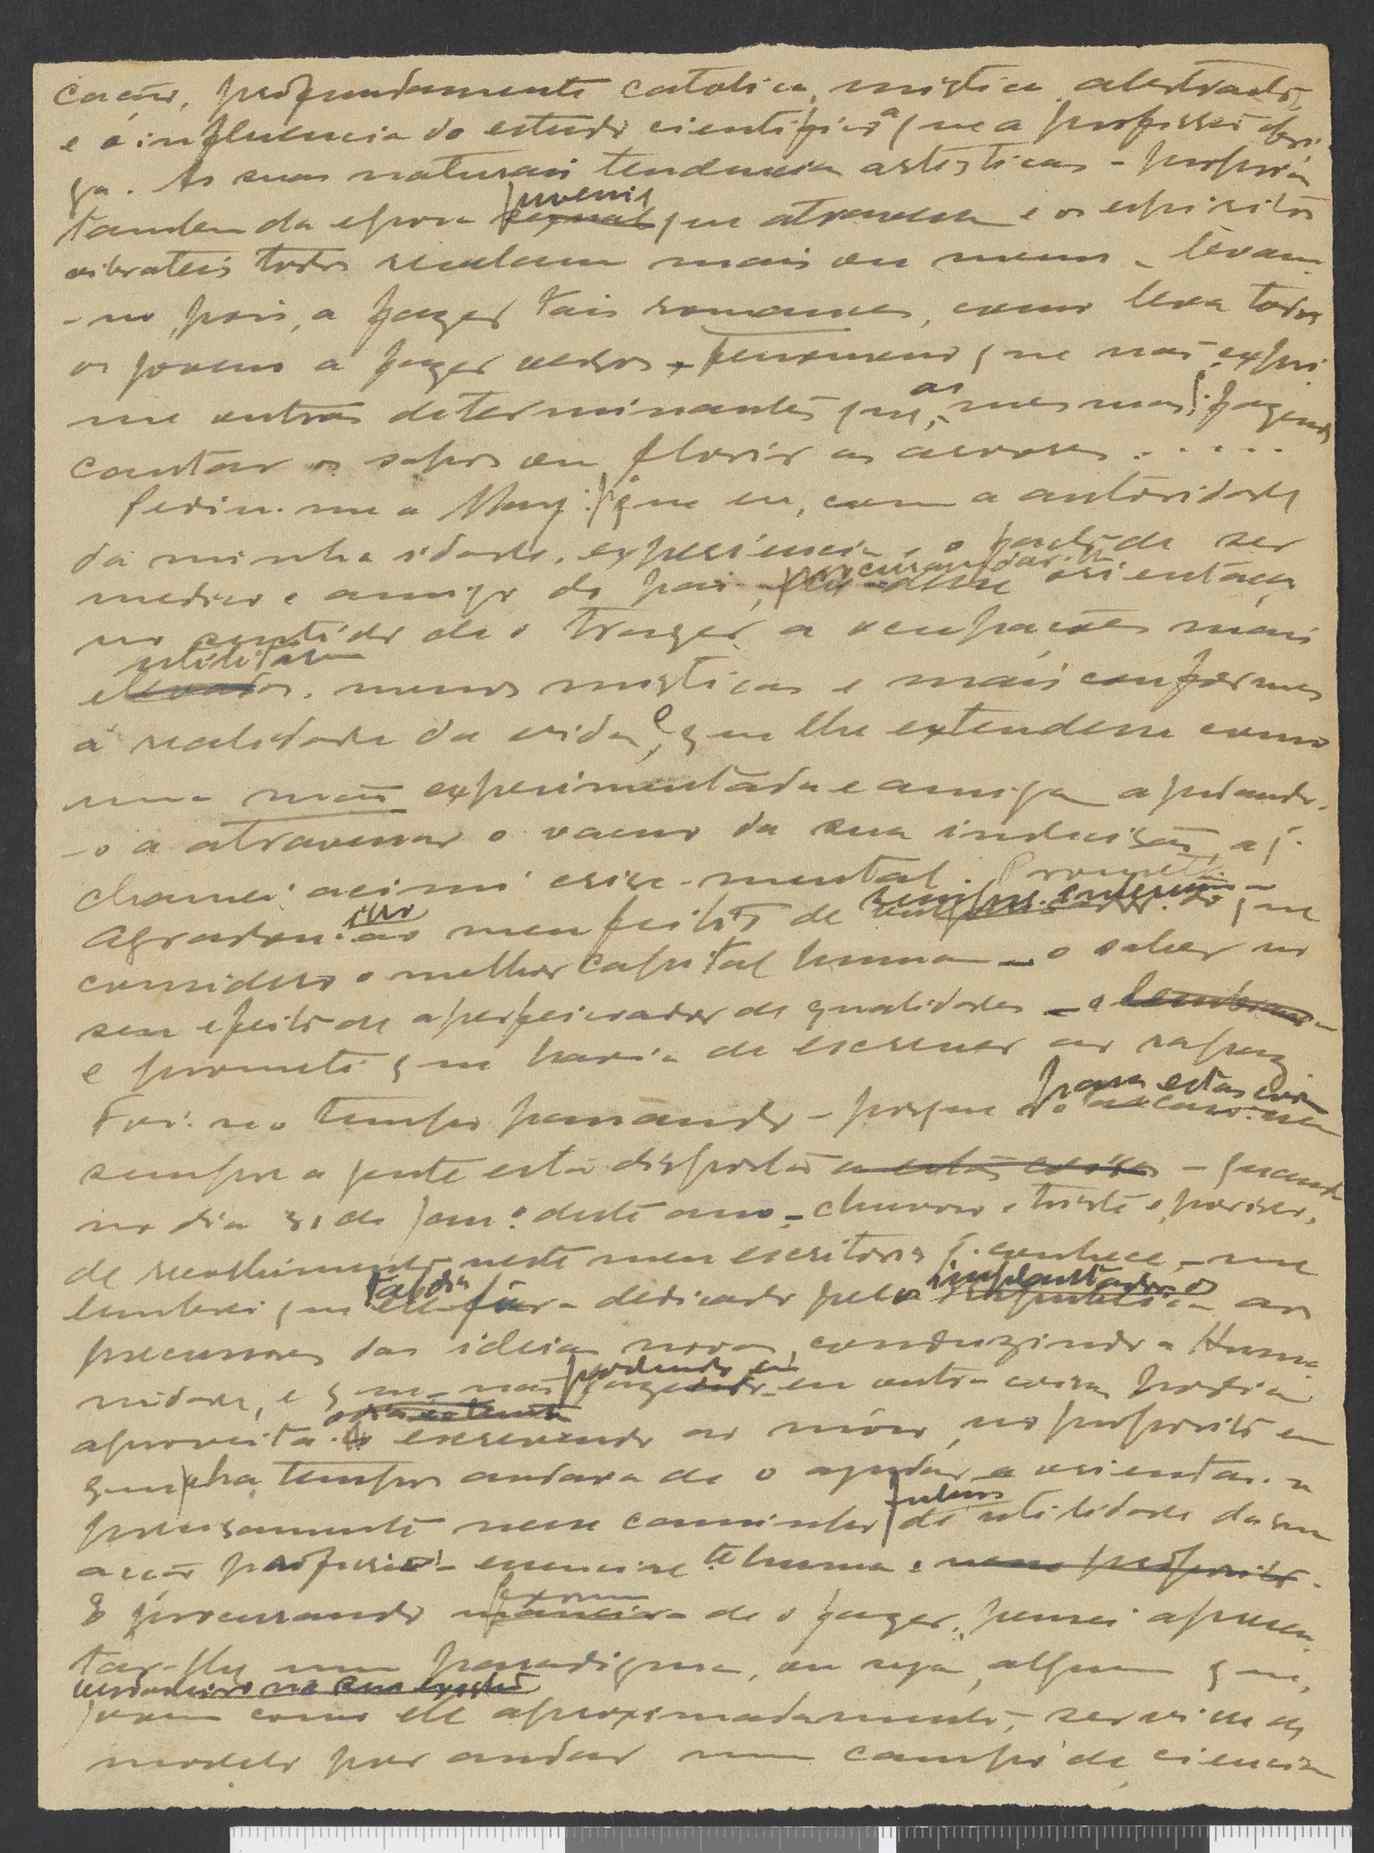 cação, profundamente catolica, mistica, abstracto,
e a influencia do estudo scientifico a que a profissão obri-
ga. As suas naturais tendencias artisticas - proprias
tambem da epoca juvenil que atravessa e os espiritos
vibrateis todos revelam mais ou menos - levam-
-no, pois, a fazer tais romances, como leva todos
os jovens a fazer versos - fenomeno que não expri-
me outras determinantes que as mesmas fazendo
cantar os sapos ou florir as arvores.....
Pediu-me a que eu, com a autoridade
da minha idade, experiencia e o facto de ser
medico e amigo do pai, procurasse orientação
no sentido de o trazer a ocupações mais
utilitarias
elevados, menos misticas e mais conformes
á realidade da vida, e que lhe extendesse como
uma mão experimentada e amiga ajudando-
-o a atravessar o vacuo da sua indecisão, a q.
chamei acima crise-mental. Prometti.
Agradou isso meu feitio de sempre que
considero o melhor capital humano - o saber no
seu efeito de aperfeiçoador de qualidades -
e prometi que havia de escrever ao rapaz
Foi-se o tempo passando - porque para estas coisas nem
sempre a gente está disposta a estas coisas - quando
no dia 31 de Jan.º deste ano - chuvoso e triste e, por isso,
de recolhimento neste meu escritorio q. conhece - me
lembrei que dedicado pela aos
precursores das ideias novas, conduzindo a Huma-
nidade, e que não podendo eu outra coisa, podia
aproveita-lo escrevendo ao môço, no proposito em
que ha tempos andava de o ajudar e orientar-
precisamente nesse caminho de utilidade da sua
acção essencial.te humana. nesse proposito.
E procurando forma maneira de o fazer, pensei apresen-
tar-lhe um paradigma, ou seja, alguem que,
jovem como ele aproximadamente, servisse de
modelo por andar num campo de ciencia